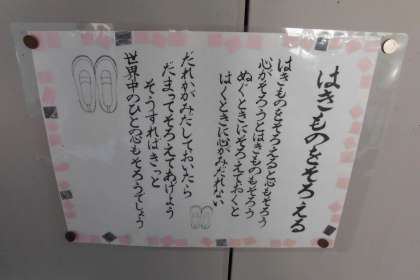 はきものをそろえる
はきものをそろえると心もそろう
心がそろうとはきものもそろう
ぬぐときにそろえておくと
はくときに心がみだれない
だれかがみだしておいたら
だまってそろえてあげよう
そうすればきっと
世界中のひとの心もそろうでしょう